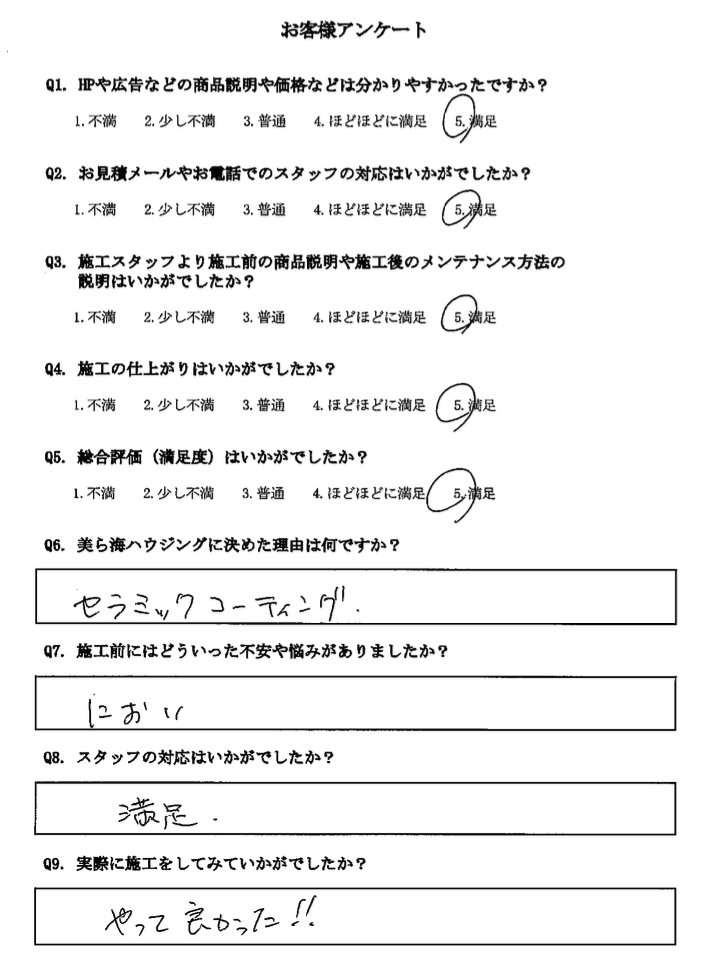 お客様アンケート
Q1. HPや広告などの商品説明や価格などは分かりやすかったですか？
1.不満 2.少し不満 3.普通 4.ほどほどに満足 5.満足
Q2. お見積メールやお電話でのスタッフの対応はいかがでしたか？
1.不満 2.少し不満 3.普通 4.ほどほどに満足 5.満足
Q3. 施工スタッフより施工前の商品説明や施工後のメンテナンス方法の
説明はいかがでしたか？
1.不満 2.少し不満 3.普通 4.ほどほどに満足 5.満足
Q4. 施工の仕上がりはいかがでしたか？
1.不満 2.少し不満 3.普通 4.ほどほどに満足 5.満足
Q5. 総合評価（満足度）はいかがでしたか？
1.不満 2.少し不満 3.普通 4.ほどほどに満足 5.満足
Q6. 美ら海ハウジングに決めた理由は何ですか？
セラミックコーティング.
Q7. 施工前にはどういった不安や悩みがありましたか？
におい
Q8. スタッフの対応はいかがでしたか？
満足.
Q9. 実際に施工をしてみていかがでしたか？
やって良かった!!